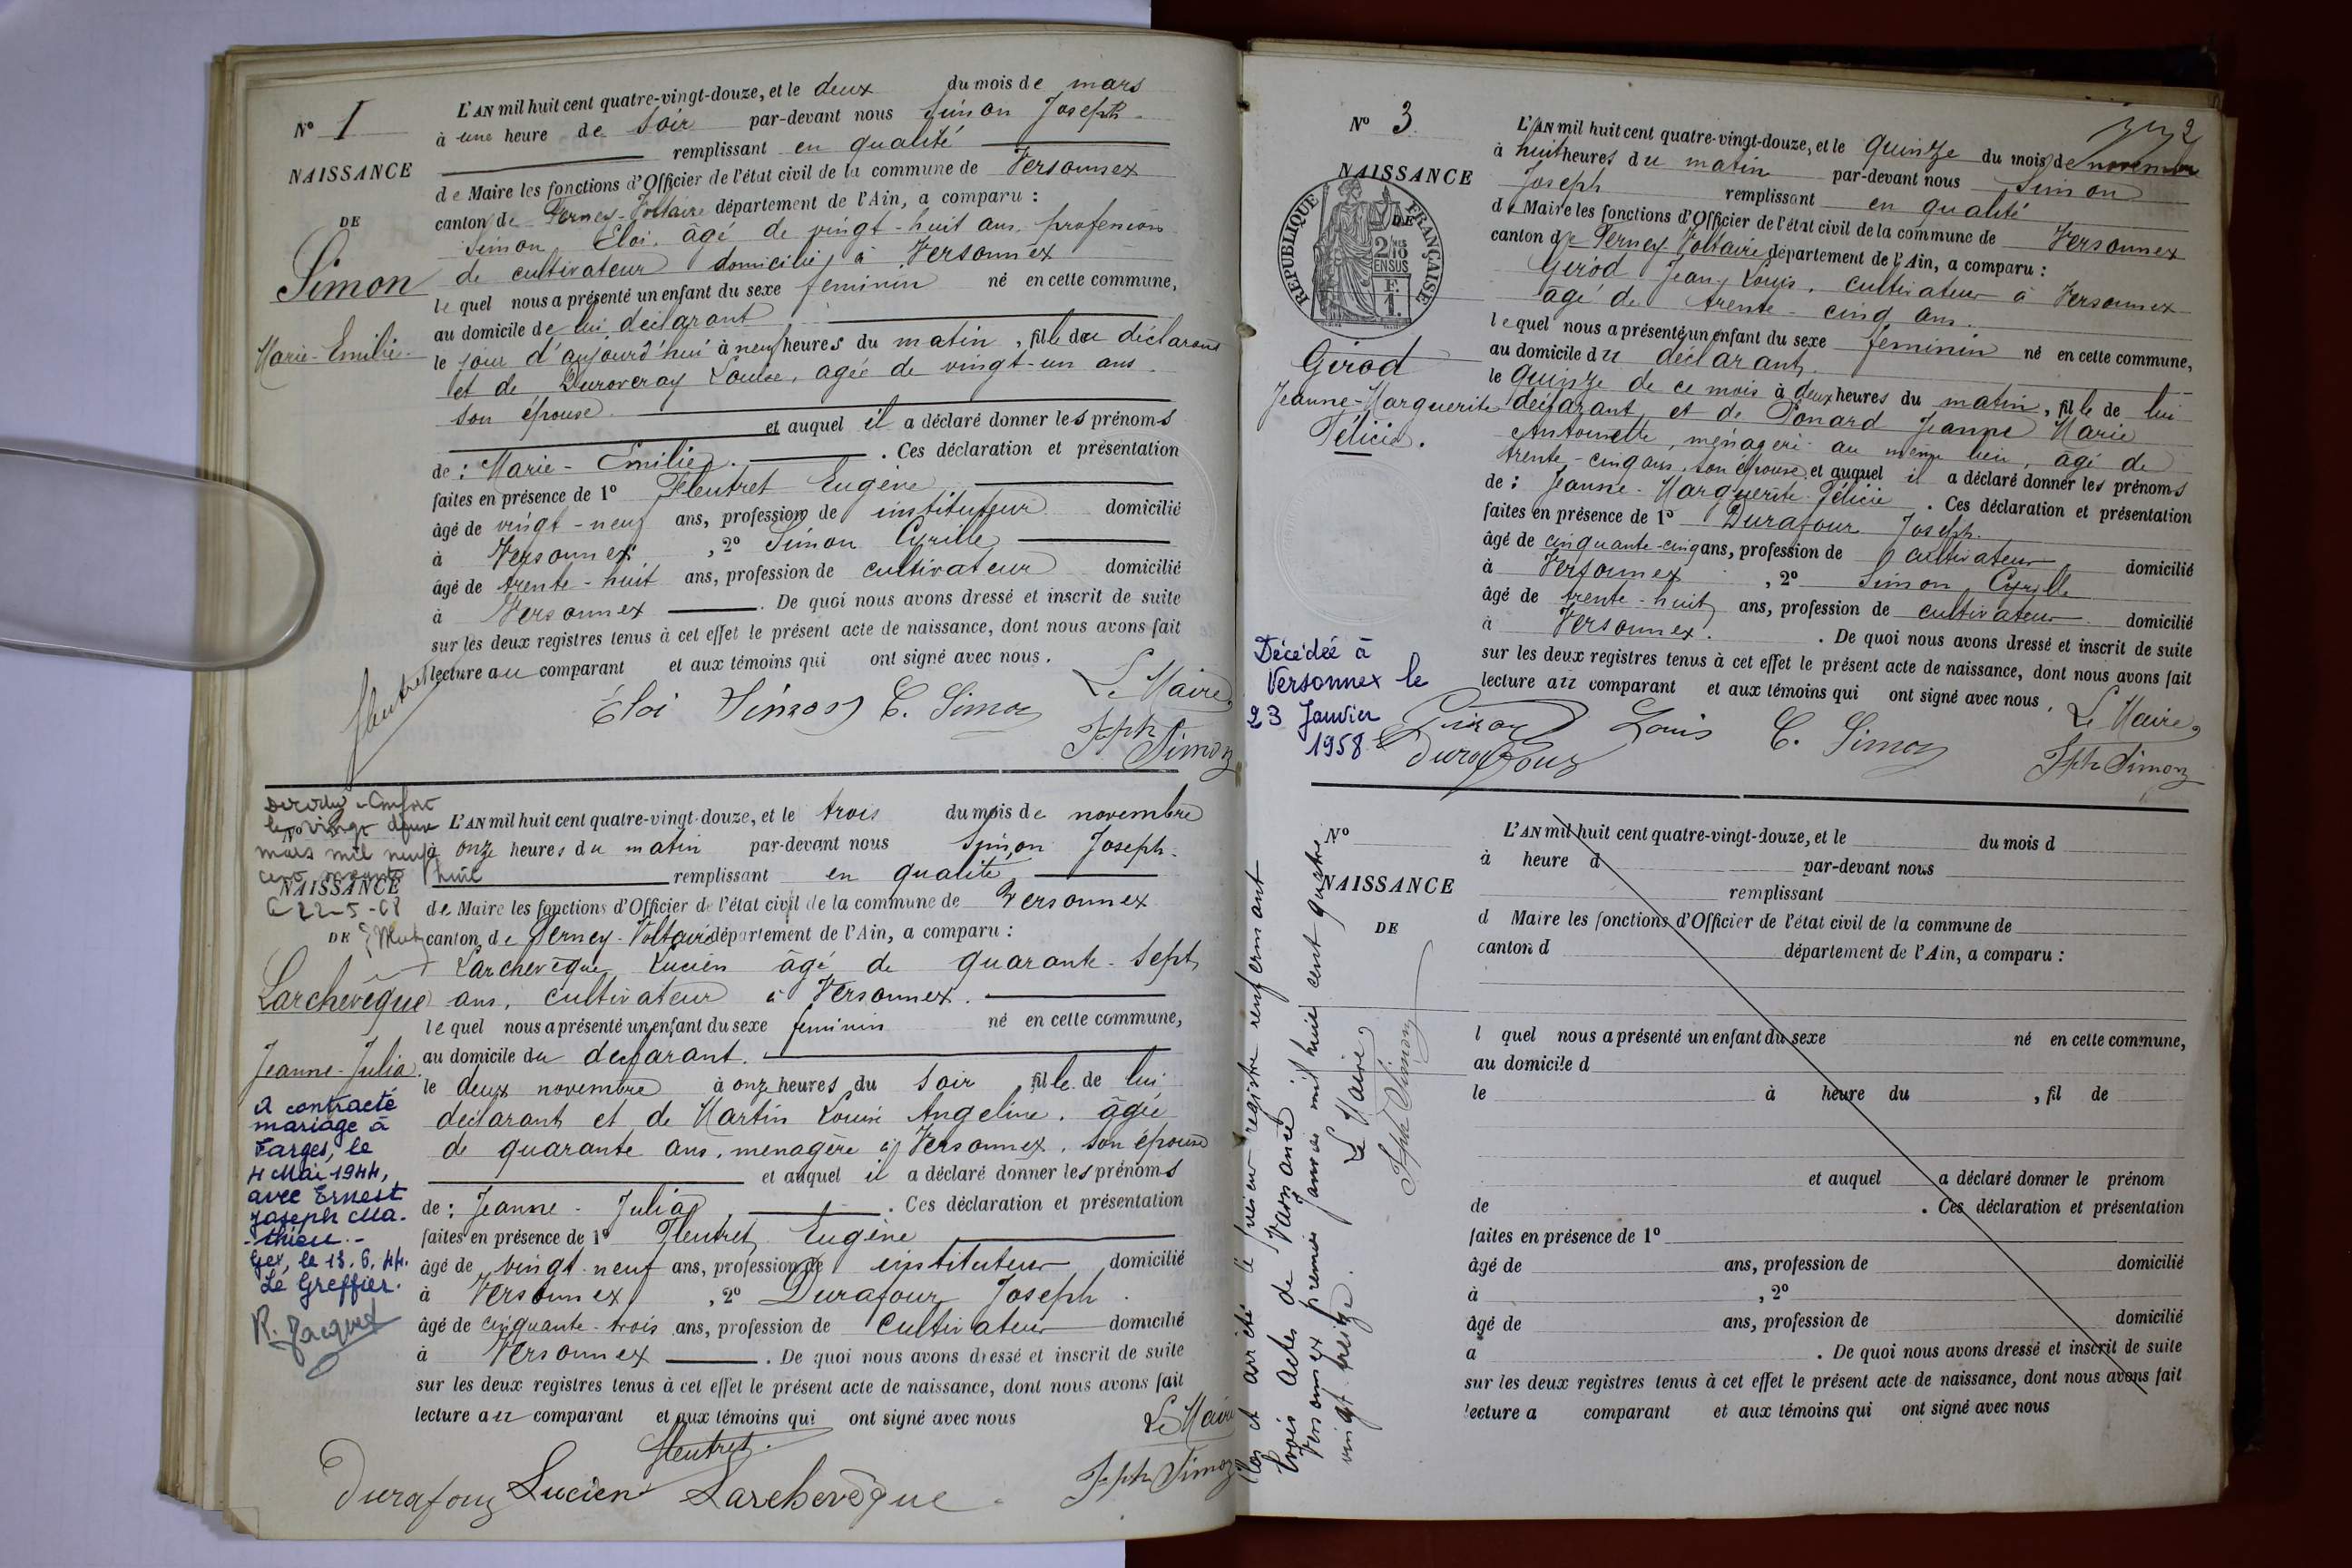 N° 1
NAISSANCE
DE
Simon
Marie-Emilie.
L'AN mil huit cent quatre-vingt-douze, et le deux du mois de mars
à une heure de soir par-devant nous Simon Joseph.
remplissant en qualité
de Maire les fonctions d'Officier de l'état civil de la commune de Versonnex
canton de Ferney-Voltaire département de l'Ain, a comparu :
Simon Eloi, âgé de vingt-huit ans, profession
de cultivateur domicilié à Versonnex
le quel nous a présenté un enfant du sexe feminin né en cette commune,
au domicile de lui déclarant
le jour d'aujourd'hui à neuf heures du matin, fille du déclarant
et de Duroveray Louise, agée de vingt-un ans
son épouse.
et auquel il a déclaré donner les prénoms
de : Marie-Emilie. . Ces déclaration et présentation
faites en présence de 1° Fleutret Eugène
âgé de vingt-neuf ans, profession de instituteur domicilié
à Versonnex , 2° Simon Cyrille
âgé de trente-huit ans, profession de cultivateur domicilié
à Versonnex . De quoi nous avons dressé et inscrit de suite
sur les deux registres tenus à cet effet le présent acte de naissance, dont nous avons fait
lecture au comparant et aux témoins qui ont signé avec nous.
fleutret Éloi Simon C. Simon Le Maire,
Jph Simon
vingt deux
mars mil neuf
cent soixante huit
NAISSANCE
22-5-68
DE
Larchevêque
Jeanne-Julia.
A contracté
mariage à
Farges, le
4 Mai 1944,
avec Ernest
Joseph Ma-
-thieu.-
Gex, le 13.6.44.
Le Greffier.
R. Jacquet
L'AN mil huit cent quatre-vingt-douze, et le trois du mois de novembre
à onze heures du matin par-devant nous Simon Joseph.
remplissant en qualité
de Maire les fonctions d'Officier de l'état civil de la commune de Versonnex
canton de Ferney-Voltaire département de l'Ain, a comparu :
Larchevêque Lucien âgé de quarante-sept
ans, cultivateur à Versonnex.
le quel nous a présenté un enfant du sexe feminin né en cette commune,
au domicile du déclarant.
le deux novembre à onze heures du soir, fille de lui
déclarant et de Martin Louise Angeline, âgée
de quarante ans, menagère à Versonnex, son épouse
et auquel il a déclaré donner les prénoms
de : Jeanne-Julia, . Ces déclaration et présentation
faites en présence de 1° Fleutret Eugène
âgé de vingt-neuf ans, profession de instituteur domicilié
à Versonnex , 2° Durafour Joseph.
âgé de cinquante-trois ans, profession de cultivateur domicilié
à Versonnex . De quoi nous avons dressé et inscrit de suite
sur les deux registres tenus à cet effet le présent acte de naissance, dont nous avons fait
lecture au comparant et aux témoins qui ont signé avec nous
Le Maire
fleutret.
Durafour Lucien Larchevêque Jph Simon
2
N° 3
NAISSANCE
RÉPUBLIQUE FRANÇAISE
DE
2/10
EN SUS
1F.
Girod
Jeanne-Marguerite
Félicie.
Décédée à
Versonnex le
23 Janvier
1958
L'AN mil huit cent quatre-vingt-douze, et le quinze du mois de novembre
à huit heures du matin par-devant nous Simon
Joseph remplissant en qualité
de Maire les fonctions d'Officier de l'état civil de la commune de Versonnex
canton de Ferney Voltaire département de l'Ain, a comparu :
Girod Jean Louis, cultivateur à Versonnex
âgé de trente-cinq ans.
lequel nous a présenté un enfant du sexe feminin né en cette commune,
au domicile du déclarant.
le quinze de ce mois à deux heures du matin, fille de lui
déclarant et de Ponard Jeanne Marie
Antoinette, ménagère au même lieu, âgé de
trente-cinq ans, son épouse et auquel il a déclaré donner les prénoms
de : Jeanne-Marguerite-Félicie . Ces déclaration et présentation
faites en présence de 1° Durafour Joseph.
âgé de cinquante-cinq ans, profession de cultivateur domicilié
à Versonnex , 2° Simon Cyrille
âgé de trente-huit ans, profession de cultivateur domicilié
à Versonnex. . De quoi nous avons dressé et inscrit de suite
sur les deux registres tenus à cet effet le présent acte de naissance, dont nous avons fait
lecture au comparant et aux témoins qui ont signé avec nous. Le Maire,
Girod Louis C. Simon
Durafour Jph Simon
N°
NAISSANCE
DE
L'AN mil huit cent quatre-vingt-douze, et le du mois d
à heure d par-devant nous
remplissant
d Maire les fonctions d'Officier de l'état civil de la commune de
canton d département de l'Ain, a comparu :
l quel nous a présenté un enfant du sexe né en cette commune,
au domicile d
le à heure du , fil de
et auquel a déclaré donner le prénom
de . Ces déclaration et présentation
faites en présence de 1°
âgé de ans, profession de domicilié
à , 2°
âgé de ans, profession de domicilié
à . De quoi nous avons dressé et inscrit de suite
sur les deux registres tenus à cet effet le présent acte de naissance, dont nous avons fait
lecture a comparant et aux témoins qui ont signé avec nous
Clos et arrêté le présent registre renfermant
trois actes de naissance
Versonnex premier janvier mil huit cent quatre
vingt treize. Le Maire
Jph Simon